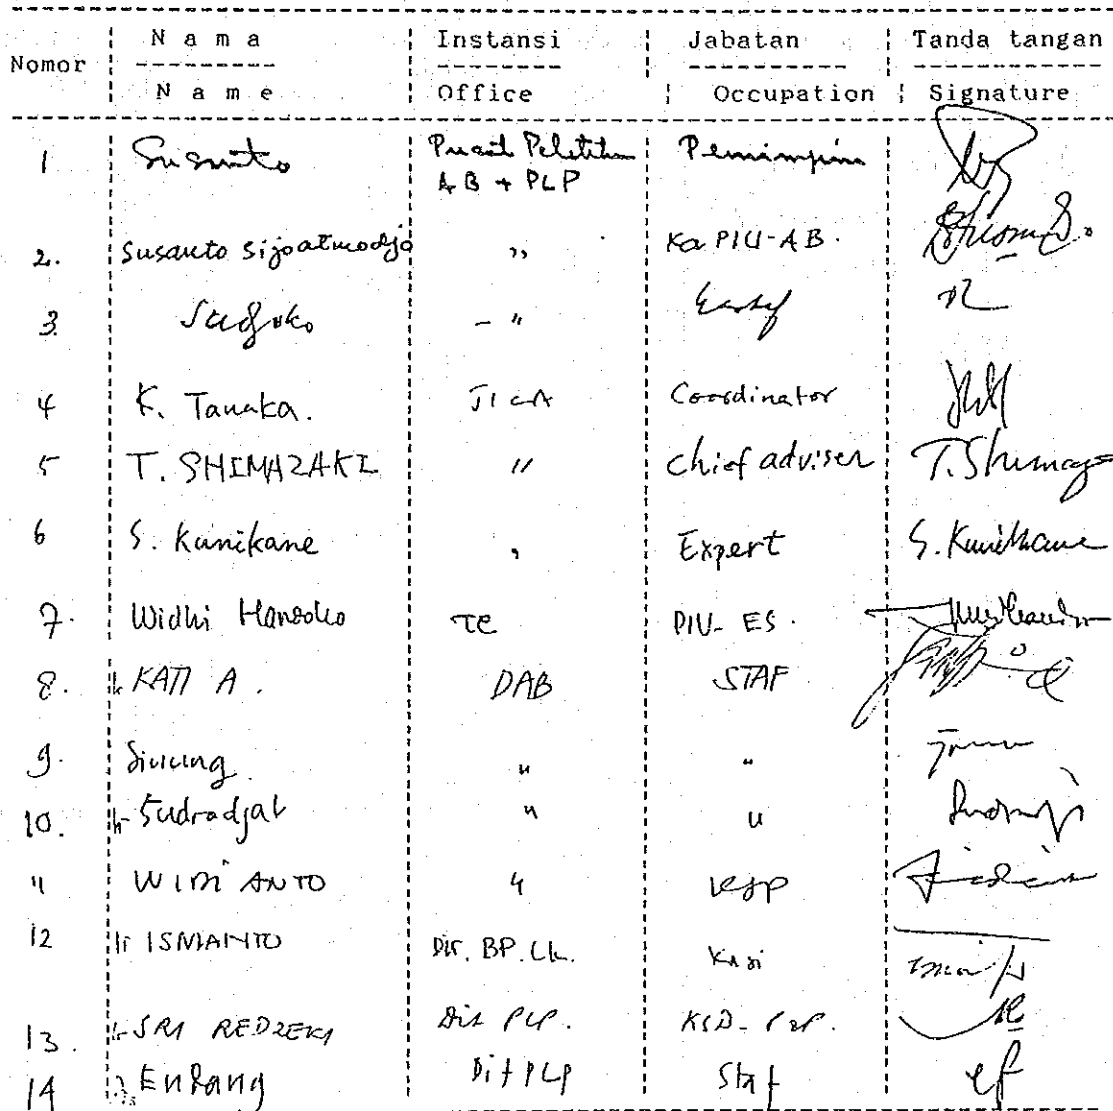 Nomor | N a m a | Instansi | Jabatan | Tanda tangan
N a m e | Office | Occupation | Signature
1 Susanto Pusat Pelatihan Pemimpin
AB + PLP
2. Susanto Sijoatmodjo ,, Ka PIU-AB.
3. Sudjoko - "
4 K. Tanaka. JICA Coordinator
5 T. SHIMAZAKI " Chief adviser T. Shimaz
6 S. Kunikane , Expert S. Kunikane
7. Widhi Handoko TC PIU- ES.
8. Ir KATI A. DAB STAF
9. " "
10. Ir Sudradjat " "
11 WIDIANTO "
12 Ir ISMANTO Dit. BP. Kasi
13. Ir SRI REDZEKI Dit PLP.
14 Endang Dit PLP Staf